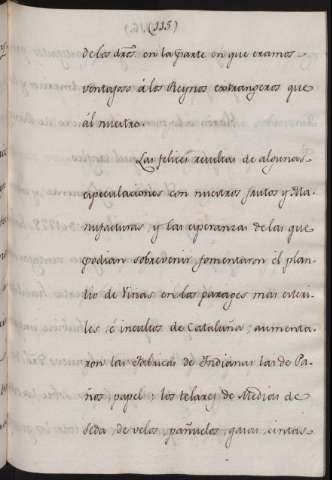 (115.)
de los dr̃es. en la parte en que eramos
ventajosos á los Reynos extrangeros que
ál nuestro.
Las felices resultas de algunas
especulaciones con nuestros frutos y Ma-
nufacturas, y las esperanzas de las que
podian sobrevenir fomentaron el plan-
tío de Viñas en los parages mas esteri-
les é incultos de Cataluña; aumenta-
ron las Fabricas de Indianas las de Pa-
ños papel; los telares de Medias de
Seda, de velos, pañuelos, gasas, cintas